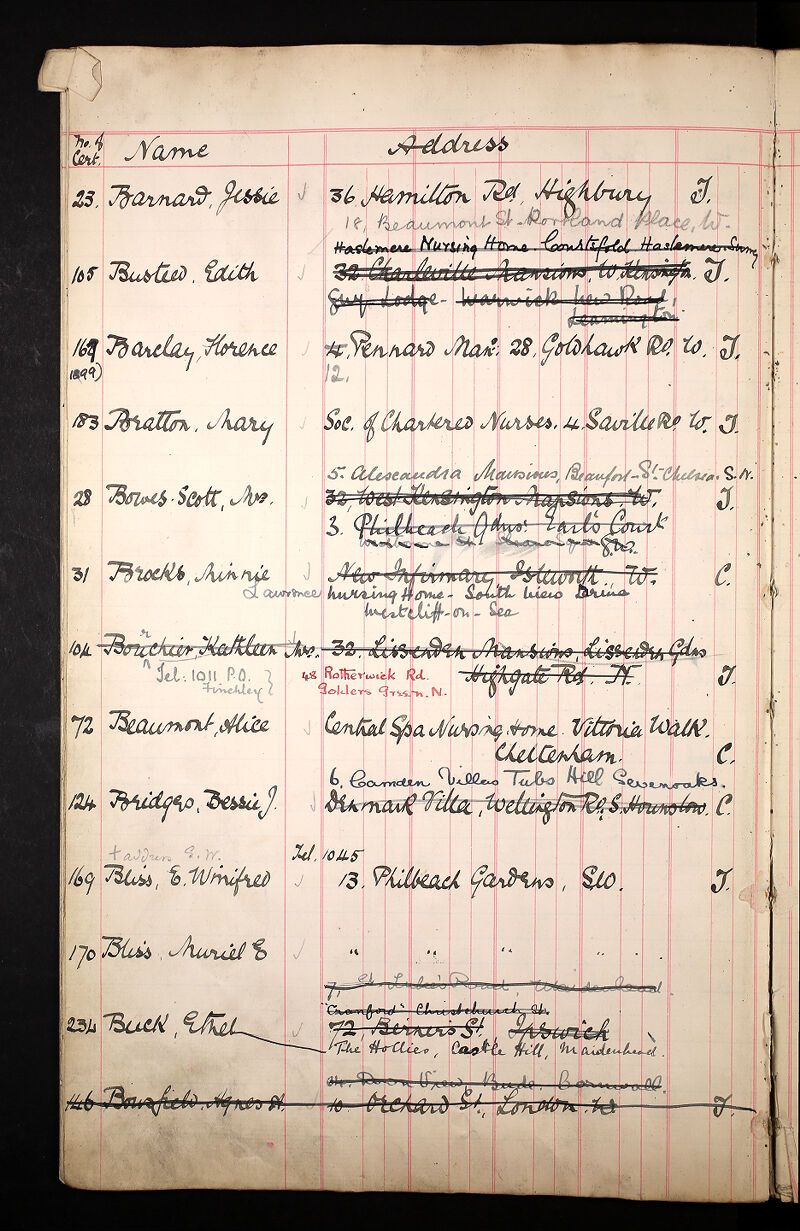 No. of Cert. Name Address
23. Barnard, Jessie 36 Hamilton Rd, Highbury T.
18, Beaumont St. Portland Place, W.
Haslemere Nursing Home. Haslemere. Surrey
105 Busteed, Edith 32 Charleville Mansions, W. Kensington. T.
Guy Lodge - Warwick New Road,
Leamington
169 Barclay, Florence 4, Pennard Man: 28, Goldhawk Rd. W. T.
1899) 12.
183 Bratton, Mary Soc. of Chartered Nurses. 4. Saville Ro W. T.
5. Alexandra Mansions, Beaufort St. Chelsea. S.W.
28 Bowes-Scott, Mrs. 32, West Kensington Mansions, W. T.
3. Philbeach Gdns. Earl's Court
31 Brocks, Minnie New Infirmary, Isleworth, W. C.
Lawrence Nursing Home - South View Drive
Westcliff-on-Sea
104 Bourchier, Kathleen Mrs. 32. Lissenden Mansions, Lissenden Gdns
Tel: 1011 P.O. 48 Rotherwick Rd. Highgate Rd. N. T.
Finchley Golders Green. N.
72 Beaumont, Alice Central Spa Nursing Home. Vittoria Walk.
Cheltenham. C.
6, Camden Villas Tubs Hill Sevenoaks.
124 Bridges, Bessie J. Denmark Villa, Wellington Rd. S. Hounslow. C.
+ address E.W. Tel. 1045
169 Bliss, E. Winifred 13. Philbeach Gardens, S.W. T.
170 Bliss, Muriel E " " " "
7, St. Luke's Road Maidenhead.
"Cranford" Christchurch St.
234 Buck, Ethel 72, Berners St, Ipswich
The Hollies, Castle Hill, Maidenhead.
View, Bude. Cornwall.
146 Bousfield, Agnes H. 10 Orchard St., London. W T.